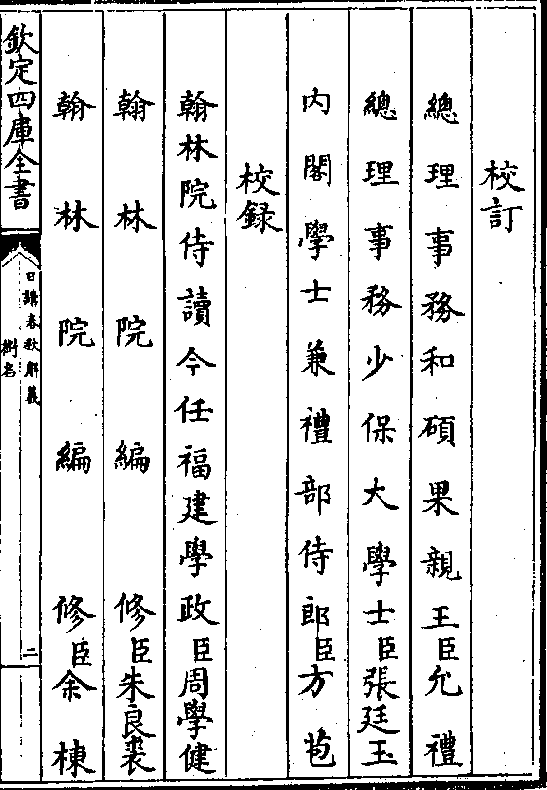 校訂
總理事務和碩果親王臣允禮
總理事務少保大學士臣張廷玉
内閣學士兼禮部侍郎臣方苞
校録
翰林院侍讀今任福建學政臣周學健
翰林院編修臣朱良裘
翰林院編修臣余棟
欽定四庫全書
日講春秋解義
銜名
二